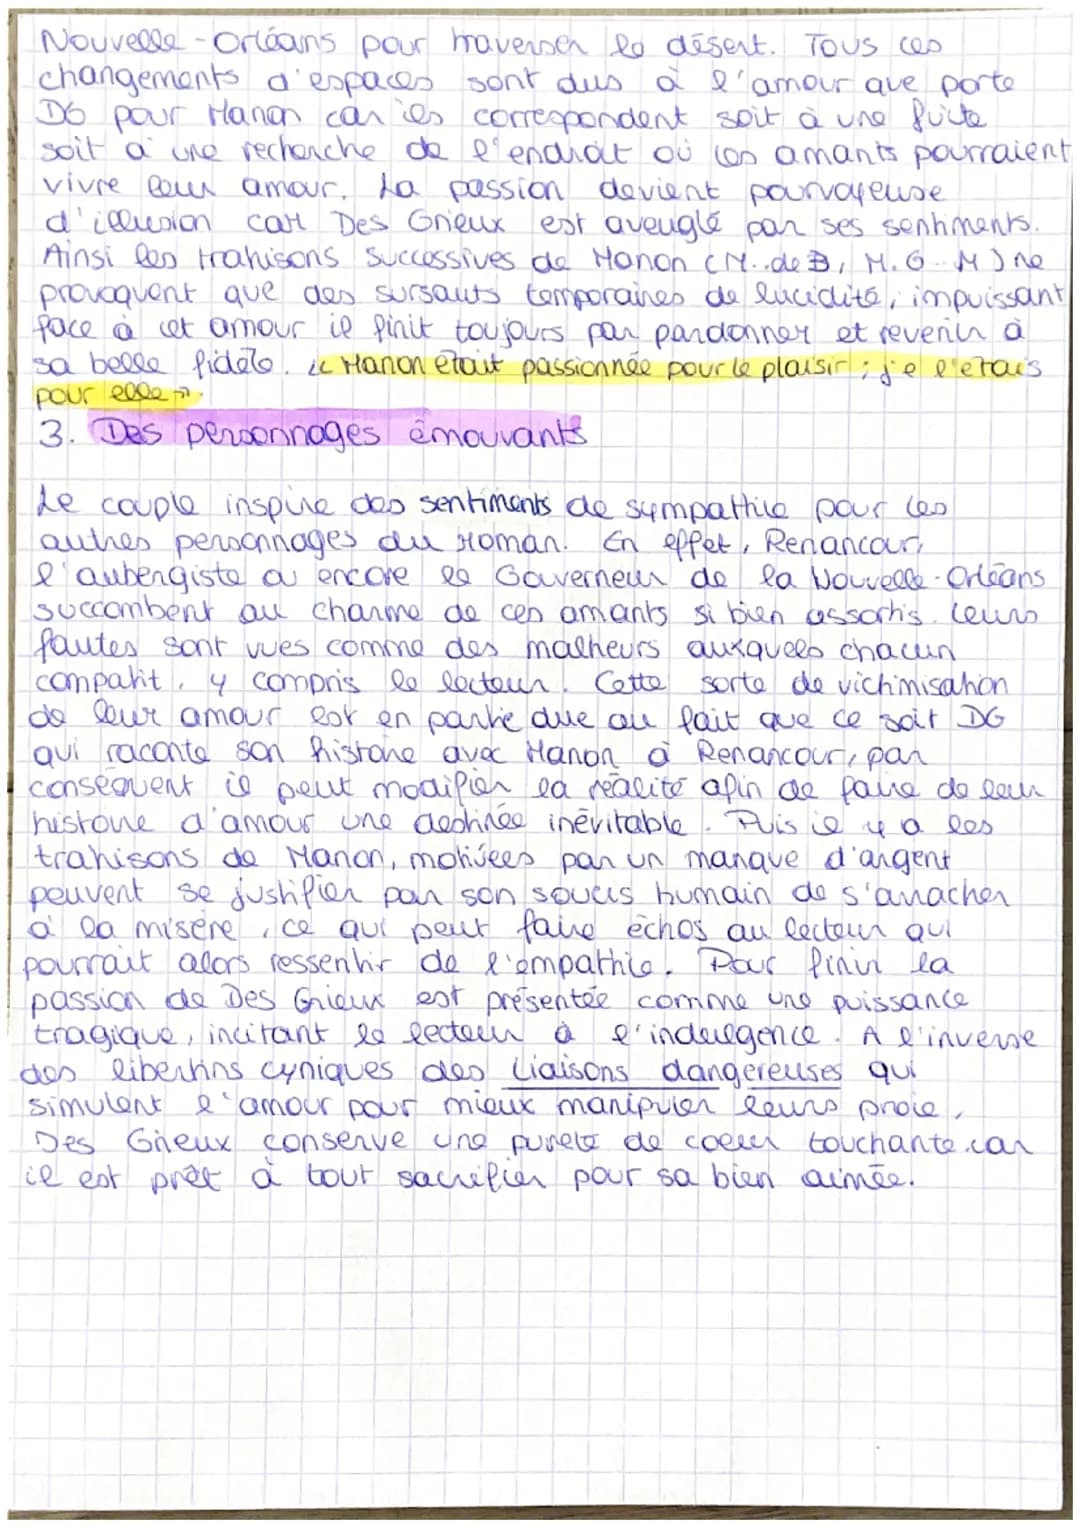 Nouvelle-Orléans pour traverser le désert. Tous ces
changements d'espaces sont dus à l'amour que porte
DG pour Manon car ils correspondent soit à une fuite
soit à une recherche de l'endroit où les amants pourraient
vivre leur amour. La passion devient pourvoyeuse
d'illusion car Des Grieux est aveuglé par ses sentiments.
Ainsi les trahisons successives de Manon (M..de B, M.G..M) ne
provoquent que des sursauts temporaires de lucidité, impuissant
face à cet amour il finit toujours par pardonner et revenir à
sa belle fidèle. « Manon était passionnée pour le plaisir ; je l'étais
pour elle ».
3. Des personnages émouvants
Le couple inspire des sentiments de sympathie pour les
autres personnages du roman. En effet, Renancour,
l'aubergiste ou encore le Gouverneur de la Nouvelle-Orléans
succombent au charme de ces amants si bien assortis. Leurs
fautes sont vues comme des malheurs auxquels chacun
compatit, y compris le lecteur. Cette sorte de victimisation
de leur amour est en partie due au fait que ce soit DG
qui raconte son histoire avec Manon à Renancour, par
conséquent il peut modifier la réalité afin de faire de leur
histoire d'amour une destinée inévitable. Puis il y a les
trahisons de Manon, motivées par un manque d'argent
peuvent se justifier par son soucis humain de s'arracher
à la misère, ce qui peut faire échos au lecteur qui
pourrait alors ressentir de l'empathie. Pour finir la
passion de Des Grieux est présentée comme une puissance
tragique, incitant le lecteur à l'indulgence. A l'inverse
des libertins cyniques des Liaisons dangereuses qui
simulent l'amour pour mieux manipuler leurs proie,
Des Grieux conserve une pureté de coeur touchante car
il est prêt à tout sacrifier pour sa bien aimée.